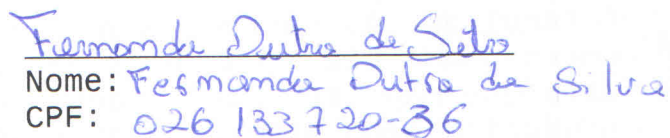 Fernanda Dutra da Silva
Nome: Fernanda Dutra da Silva
CPF: 026 133 720-36